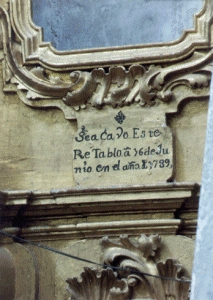 Seacavo Este
Retablo a 16 de Ju
nio en el año d 1789.